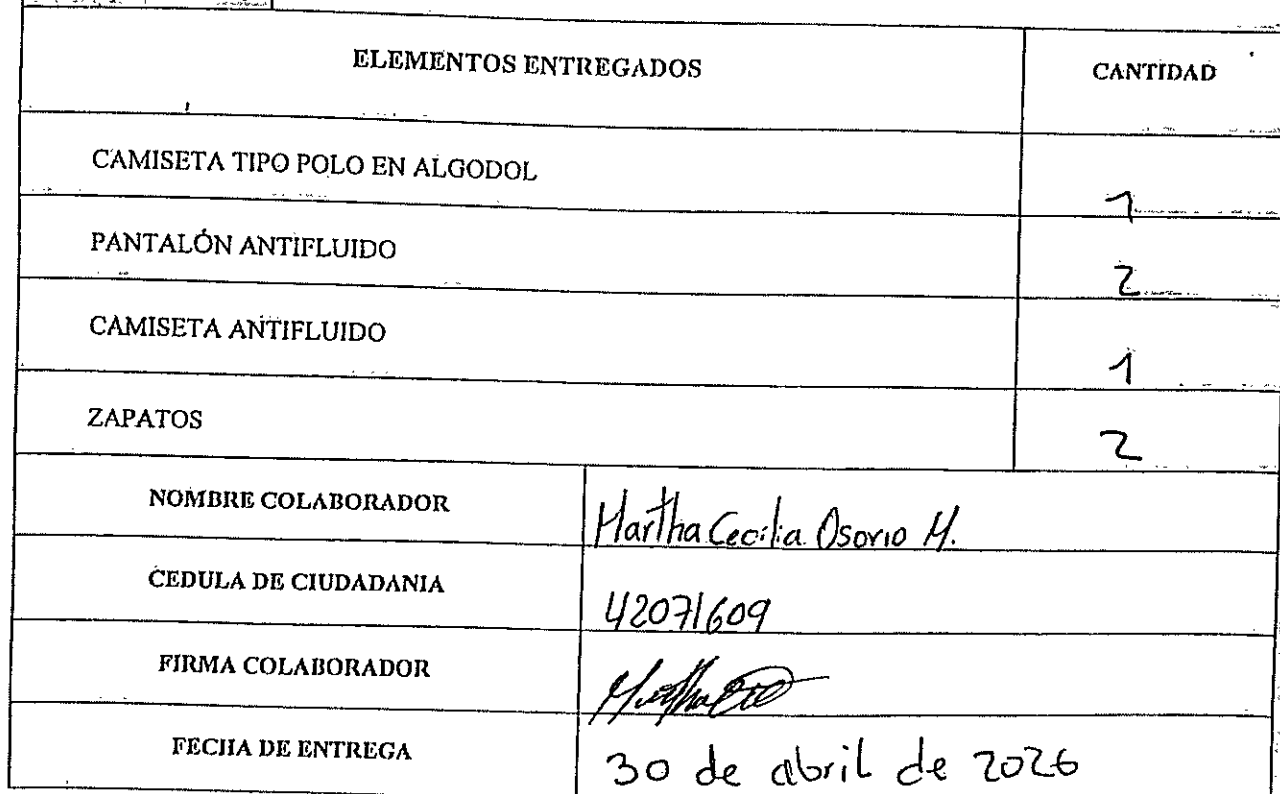 ELEMENTOS ENTREGADOS CANTIDAD
CAMISETA TIPO POLO EN ALGODOL 1
PANTALÓN ANTIFLUIDO 2
CAMISETA ANTIFLUIDO 1
ZAPATOS 2
NOMBRE COLABORADOR Martha Cecilia Osorio M.
CEDULA DE CIUDADANIA 42071609
FIRMA COLABORADOR
FECHA DE ENTREGA 30 de abril de 2026